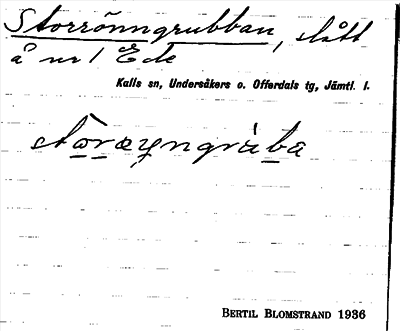 Storrönngrubban, slått
å nr 1 Ede
Kalls sn, Undersåkers o. Offerdals tg, Jämtl. l.
BERTIL BLOMSTRAND 1936